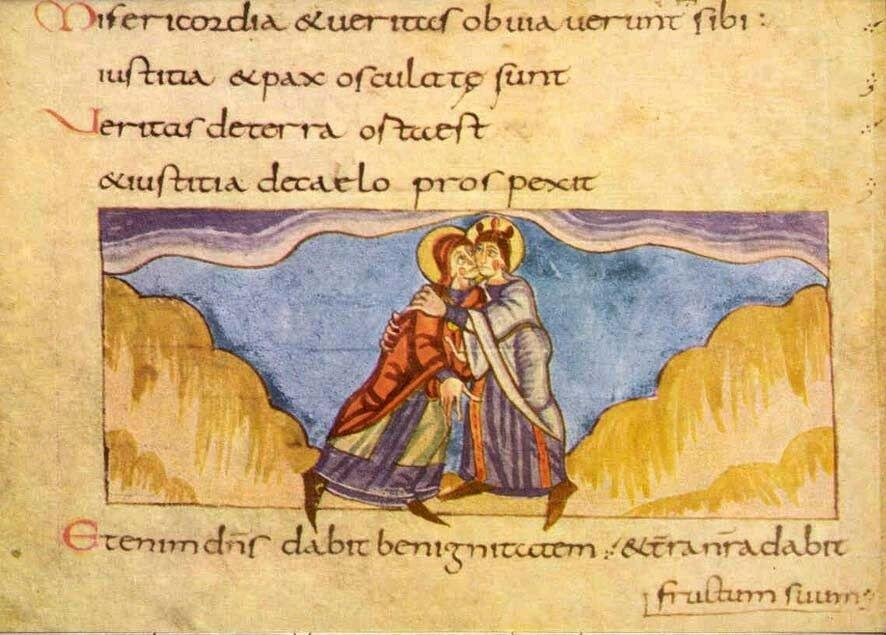 Misericordia & veritas obviaverunt sibi :
iustitia & pax osculatę sunt
Veritas de terra orta est
& iustitia de caelo prospexit
Etenim dn̄s dabit benignitatem : & t̄ra nr̄a dabit
fructum suum :